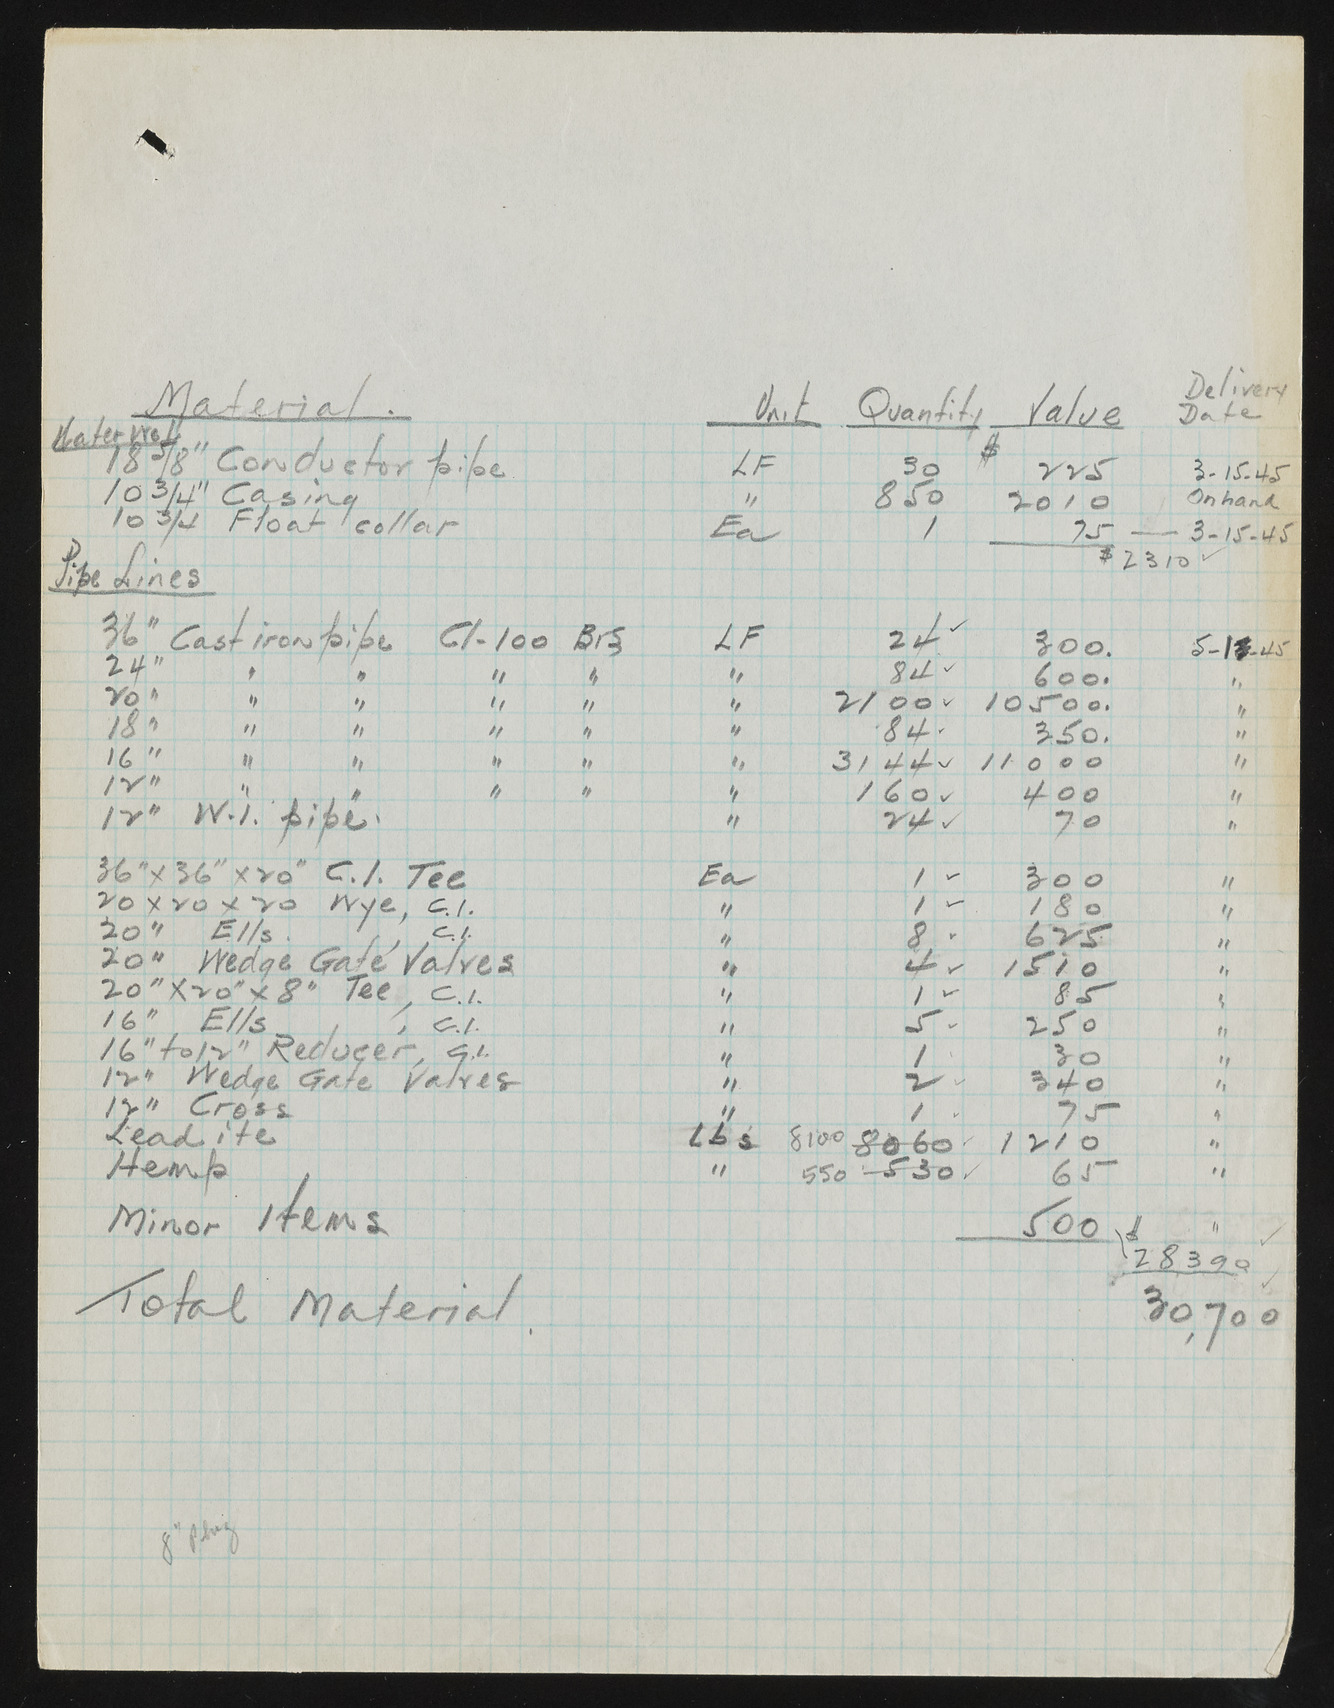 Material. Unit Quantity Value Delivery Date
Water Well
18 5/8" Conductor pipe LF 30 $ 225 3-15-45
10 3/4" Casing " 850 2010 On hand
10 3/4 Float collar Ea 1 75 — 3-15-45
$ 2310 ✓
Pipe Lines
36" Cast iron pipe Cl-100 B&S LF 24 ✓ 300. 5-15-45
24" " " " " " 84 ✓ 600. "
20" " " " " " 2100 ✓ 10500. "
18" " " " " " 84 ✓ 350. "
16" " " " " " 3144 ✓ 11000 "
12" " " " " " 160 ✓ 400 "
12" W.I. pipe. " 24 ✓ 70 "
36" x 36" x 20" C.I. Tee Ea 1 ✓ 300 "
20 x 20 x 20 Wye, C.I. " 1 ✓ 180 "
20" Ells. , C.I. " 8 ✓ 625 "
20" Wedge Gate Valves " 4 ✓ 1510 "
20" x 20" x 8" Tee, C.I. " 1 ✓ 85 "
16" Ells , C.I. " 5 ✓ 250 "
16" to 12" Reducer, C.I. " 1 30 "
12" Wedge Gate Valves " 2 ✓ 340 "
12" Cross " 1 ✓ 75 "
Leadite Lbs 8100 8060 ✓ 1210 "
Hemp " 550 530 ✓ 65 "
Minor Items 500 $ " ✓
28390 ✓
Total Material. 30,700
8" Plug